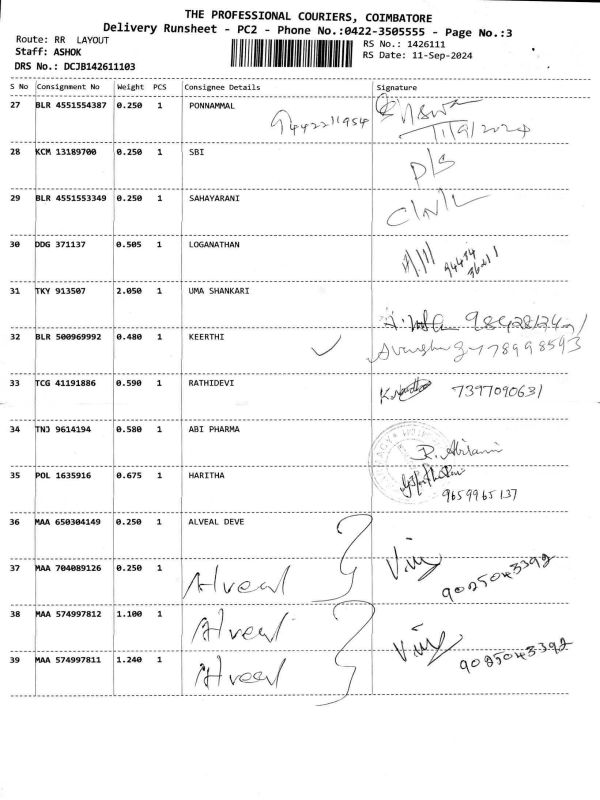 THE PROFESSIONAL COURIERS, COIMBATORE
Delivery Runsheet - PC2 - Phone No.:0422-3505555 - Page No.:3
Route: RR LAYOUT
RS No.: 1426111
Staff: ASHOK
RS Date: 11-Sep-2024
DRS No.: DCJB142611103
S No Consignment No Weight PCS Consignee Details Signature
27 BLR 4551554387 0.250 1 PONNAMMAL
9442211954
11/9/2024
28 KCM 13189700 0.250 1 SBI
D/S
29 BLR 4551553349 0.250 1 SAHAYARANI
C/N/L
30 DDG 371137 0.505 1 LOGANATHAN
31 TKY 913507 2.050 1 UMA SHANKARI
32 BLR 500969992 0.480 1 KEERTHI
33 TCG 41191886 0.590 1 RATHIDEVI
7397090631
34 TNJ 9614194 0.580 1 ABI PHARMA
R. Abirami
35 POL 1635916 0.675 1 HARITHA
9659965137
36 MAA 650304149 0.250 1 ALVEAL DEVE
37 MAA 704089126 0.250 1 Alveal
9025043392
38 MAA 574997812 1.100 1 Alveal
39 MAA 574997811 1.240 1 Alveal
9025043392